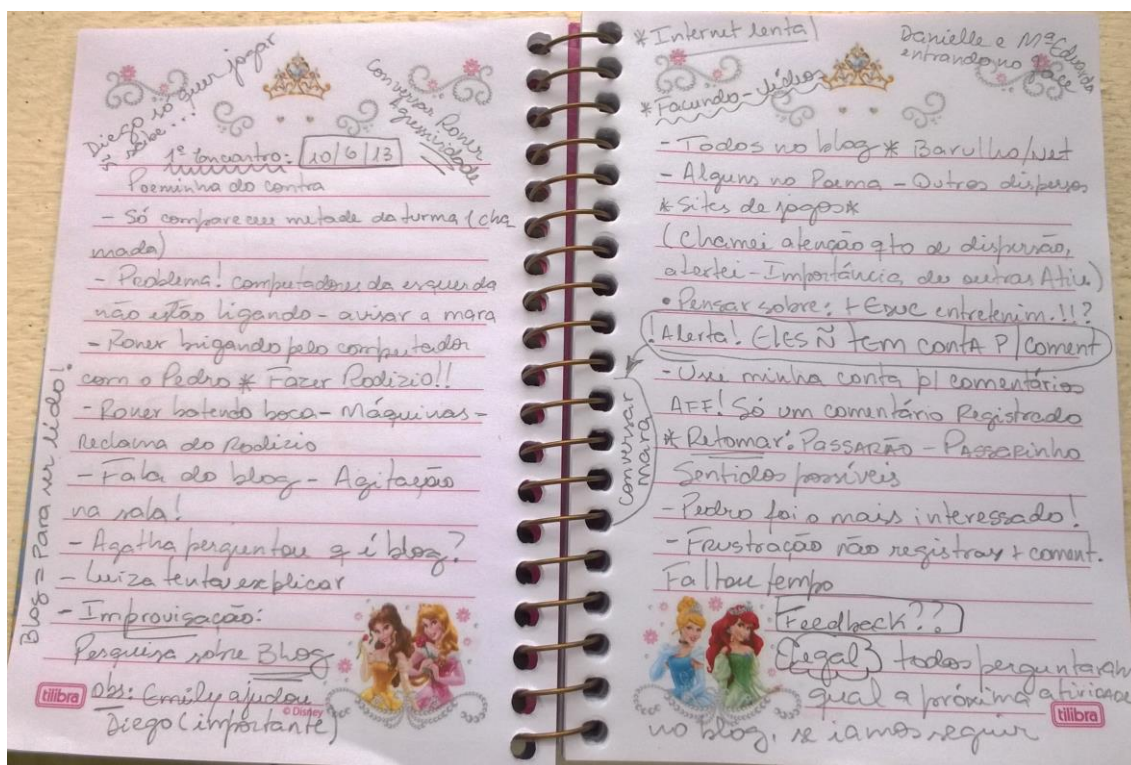 Diego só quer jogar
já sabe...
Conversar Roner
Agressividade
1º Encontro: 10/6/13
Poeminha do contra
- Só compareceu metade da turma (cha
mada)
- Problema! computadores da esquerda
não estão ligando - avisar a mara
- Roner brigando pelo computador
com o Pedro * Fazer Rodízio!!
- Roner batendo boca - Máquinas -
reclama do Rodízio
- Fala do blog - Agitação
na sala!
- Agatha perguntou q é blog?
- Luiza tenta explicar
- Improvisação:
Pesquisa sobre Blog
obs: Emily ajudou
Diego (importante)
Blog = Para ser lido!
tilibra
© Disney
* Internet lenta!
Danielle e Mª Eduarda
entrando no face
* Facundo - vídeos
- Todos no blog * Barulho/Net
- Alguns no Poema - Outros dispersos
* Sites de jogos *
(Chamei atenção qto a dispersão,
alertei - Importância de outras Ativ.)
• Pensar sobre: + EDUC entretenim.!!?
! Alerta! ELES Ñ tem conta P/ coment
- Usei minha conta p/ comentários
AFF! Só um comentário Registrado
* Retomar: PASSARÃO - PASSARINHO
Sentidos possíveis
- Pedro foi o mais interessado!
- Frustração não registrar + coment.
Faltou tempo
Feedback??
Legal? todos perguntaram
qual a próxima atividade
no blog, se íamos seguir
conversar
mara
tilibra